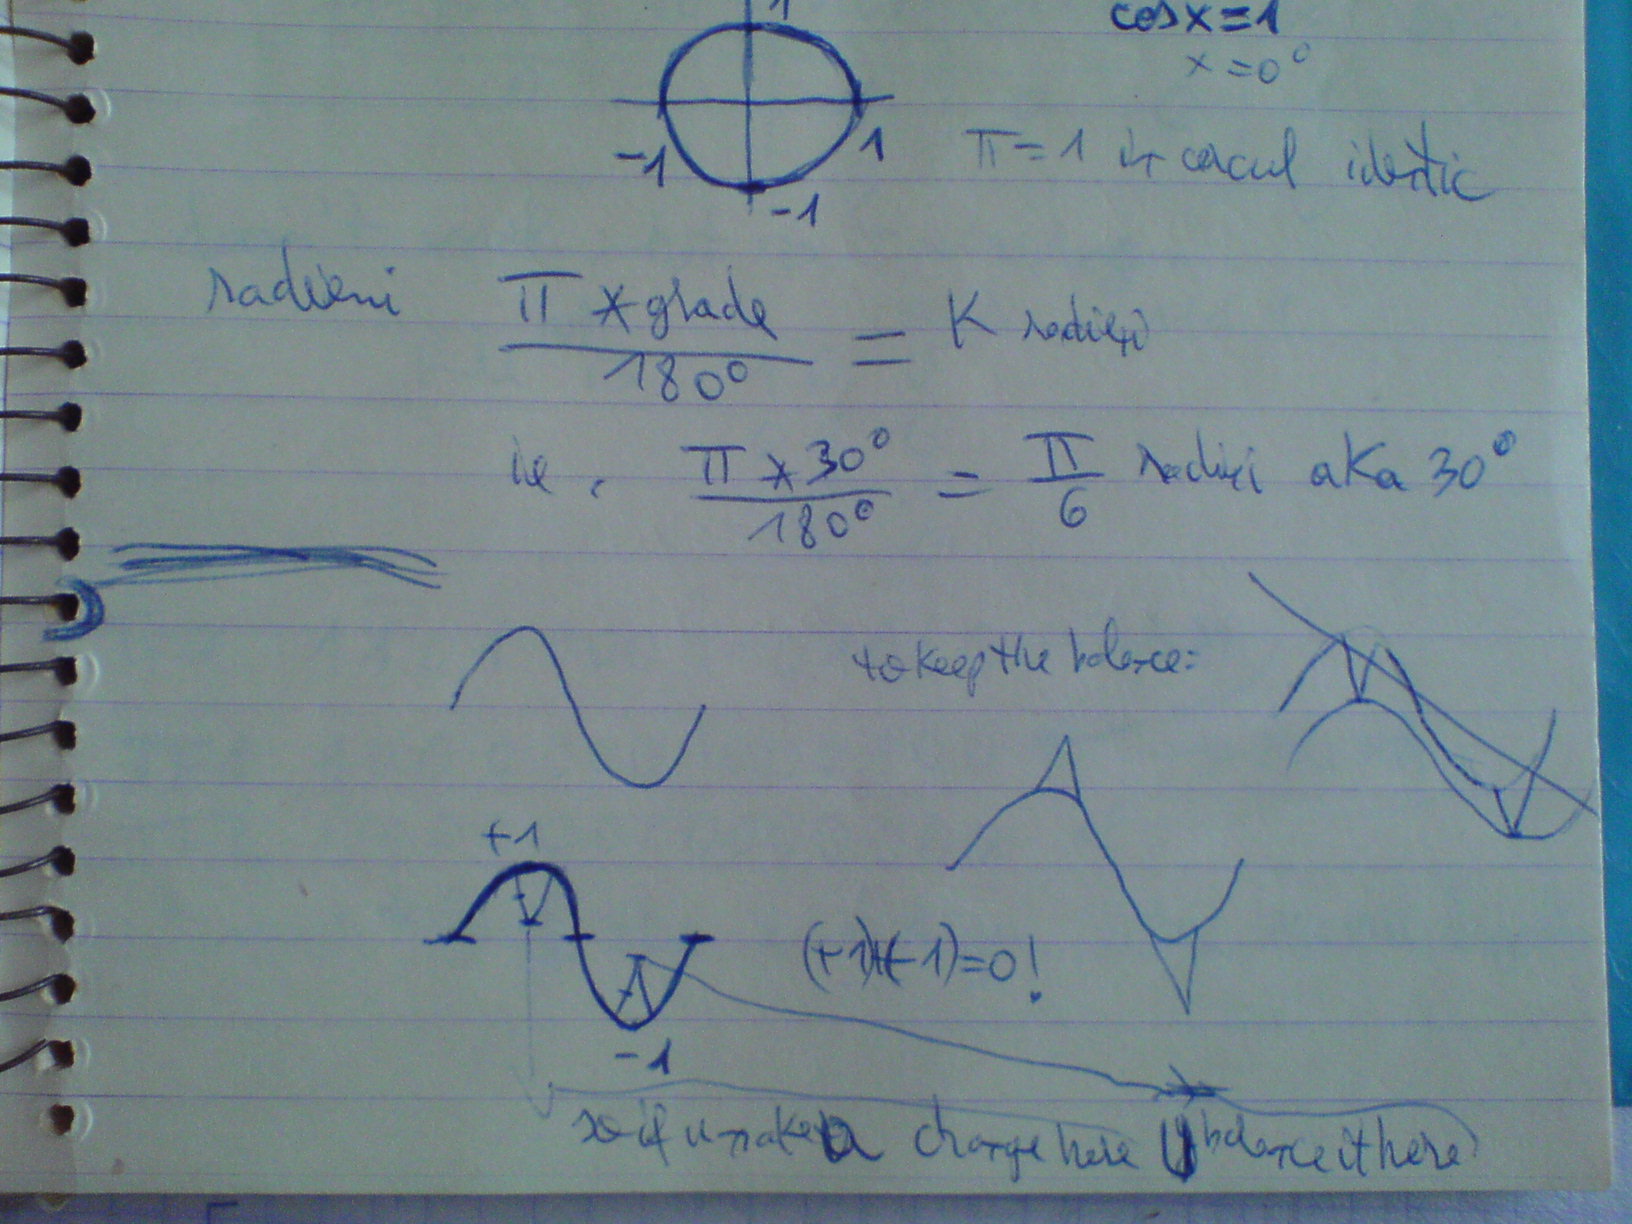 1
cosx=1
x=0°
-1
1
-1
π=1 in cercul identic
radieni
π * grade / 180° = K radieni
ie. π * 30° / 180° = π/6 radieni aka 30°
to keep the balance:
+1
(+1)+(-1)=0!
-1
so if u make a change here U balance it here